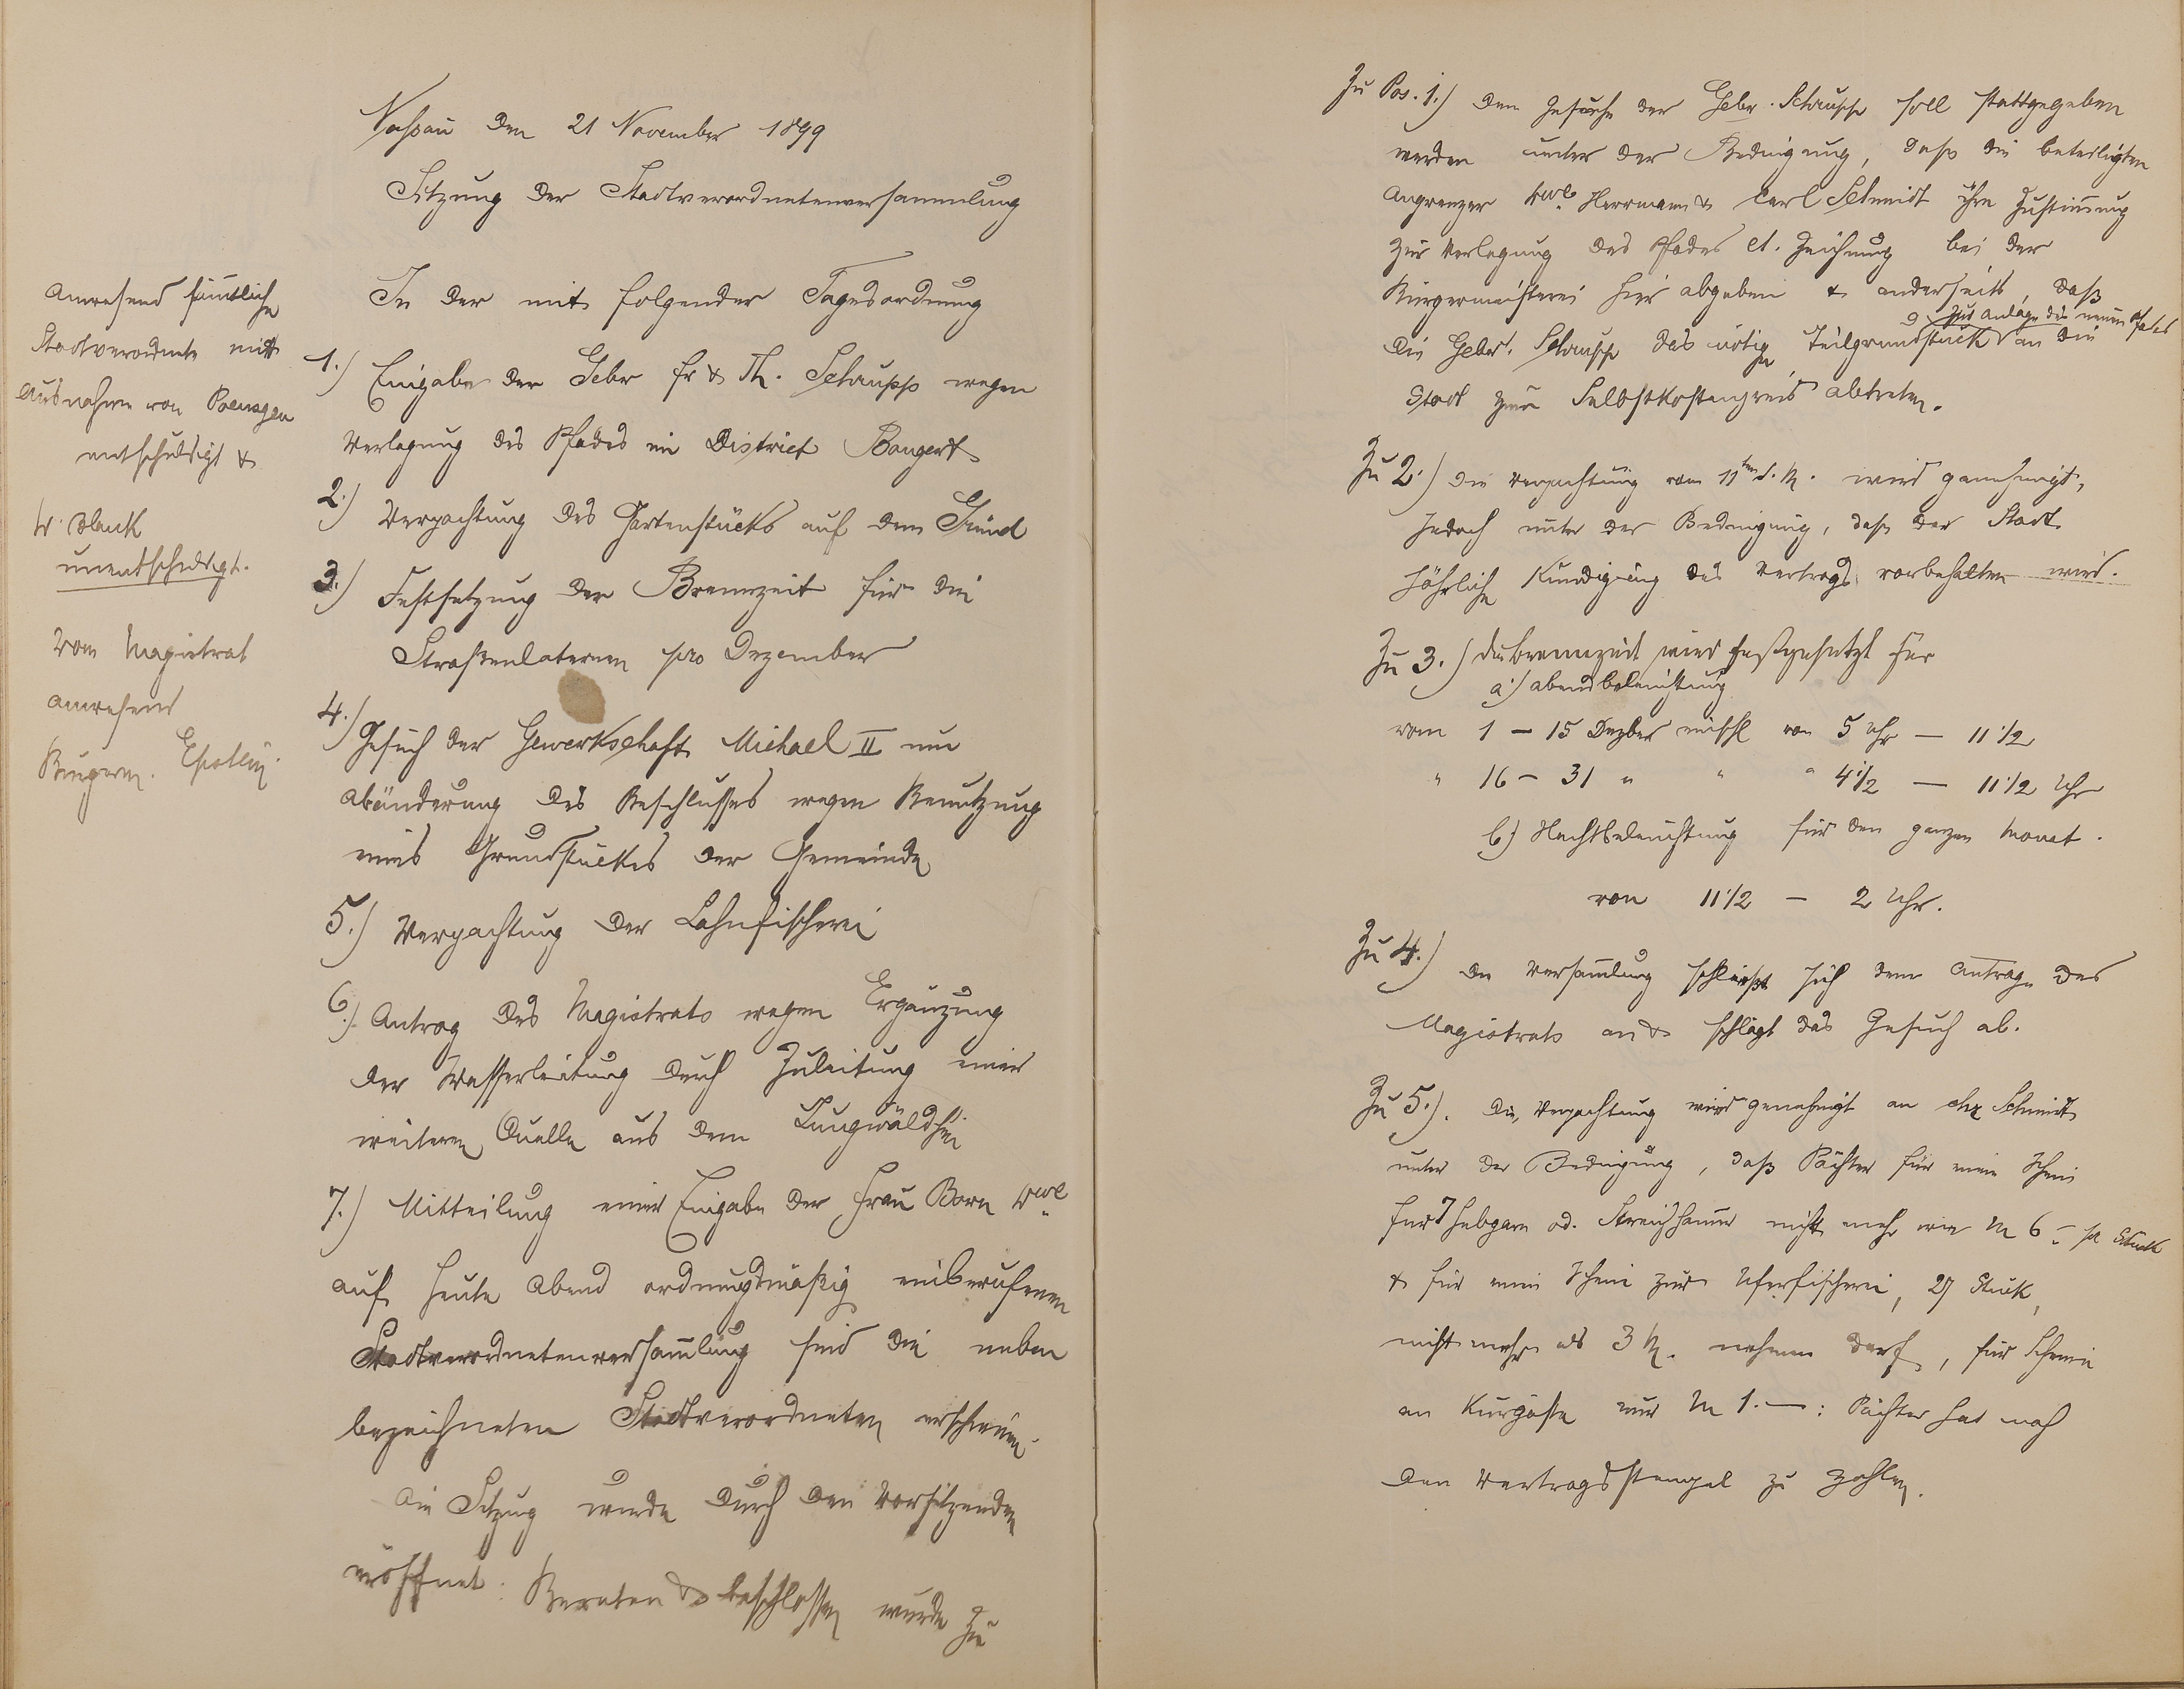 Nassau den 21 November 1899
Sitzung der Stadtverordnetenversammlung
Anwesend sämtliche
Stadtverordnete mit
Ausnahme von Poensgen
entschuldigt &
unentschuldigt.
Vom Magistrat
anwesend
Bürgerm. Epstein.
In der mit folgender Tagesordnung
1.) Eingabe der Gebr Fr & Th. Schrupp wegen
Verlegung des Pfades im District Bongert
2.) Verpachtung des Gartenstücks auf dem Grund
3.) Festsetzung der Brennzeit für die
Straßenlaternen pro Dezember
4.) Gesuch der Gewerkschaft Michael II um
Abänderung des Beschlusses wegen Benutzung
eines Grundstückes der Gemeinde
5.) Verpachtung der Lahnfischerei
6.) Antrag des Magistrats wegen Ergänzung
der Wasserleitung durch Zuleitung einer
weiteren Quelle aus dem
7.) Mitteilung einer Eingabe der Frau Born Wwe
auf heute Abend ordnungsmäßig einberufenen
Stadtverordnetenversam̄lung sind die neben
bezeichneten Stadtverordneten erschienen.
Die Sitzug wurde durch den Vorsitzenden
eröffnet. Beraten & beschlossen wurde zu
Zu Pos. 1.) Dem Gesuche der Gebr. Schrupp soll stattgegeben
werden unter der Bedingung, daß die beteiligten
Angrenzer Wwe Herrmann & Carl Schmidt ihre Zustim̄ung
zur Verlegung des Pfades lt. Zeichnung bei der
Bürgermeisterei hier abgeben & anderseits, daß
zur Anlage des neuen Pfades
die Gebr. Schrupp das nötige Teilgrundstück an die
Stadt zum Selbstkostenpreis abtreten.
Zu 2.) Die Verpachtung vom 11ten d. M. wird genehmigt,
jedoch unter der Bedingung, daß der Stadt
jährliche Kündigung des Vertrags vorbehalten wird.
Zu 3.) Die Brennzeit wird festgesetzt für
a.) Abendbeleuchtung
vom 1 – 15 Dezber einschl von 5 Uhr – 11 1/2
" 16 – 31 " " " 4 1/2 – 11 1/2 Uhr
b.) Nachtbeleuchtung für den ganzen Monat.
von 11 1/2 – 2 Uhr.
Zu 4.) Die Versam̄lung schließt sich dem Antrage des
Magistrats an & schlägt das Gesuch ab.
Zu 5.). Die Verpachtung wird genehmigt an Schmidt
unter der Bedingung, daß Pächter für einen Schein
für Hebgarn od. Streichhamen nicht mehr wie M 6.– pr Stück
& für einen Schein zur Uferfischerei, 27 Stück,
nicht mehr als 3 M. nehmen darf, für Scheine
an Kurgäste nur M 1.—: Pächter hat noch
den Vertragsstempel zu zahlen.